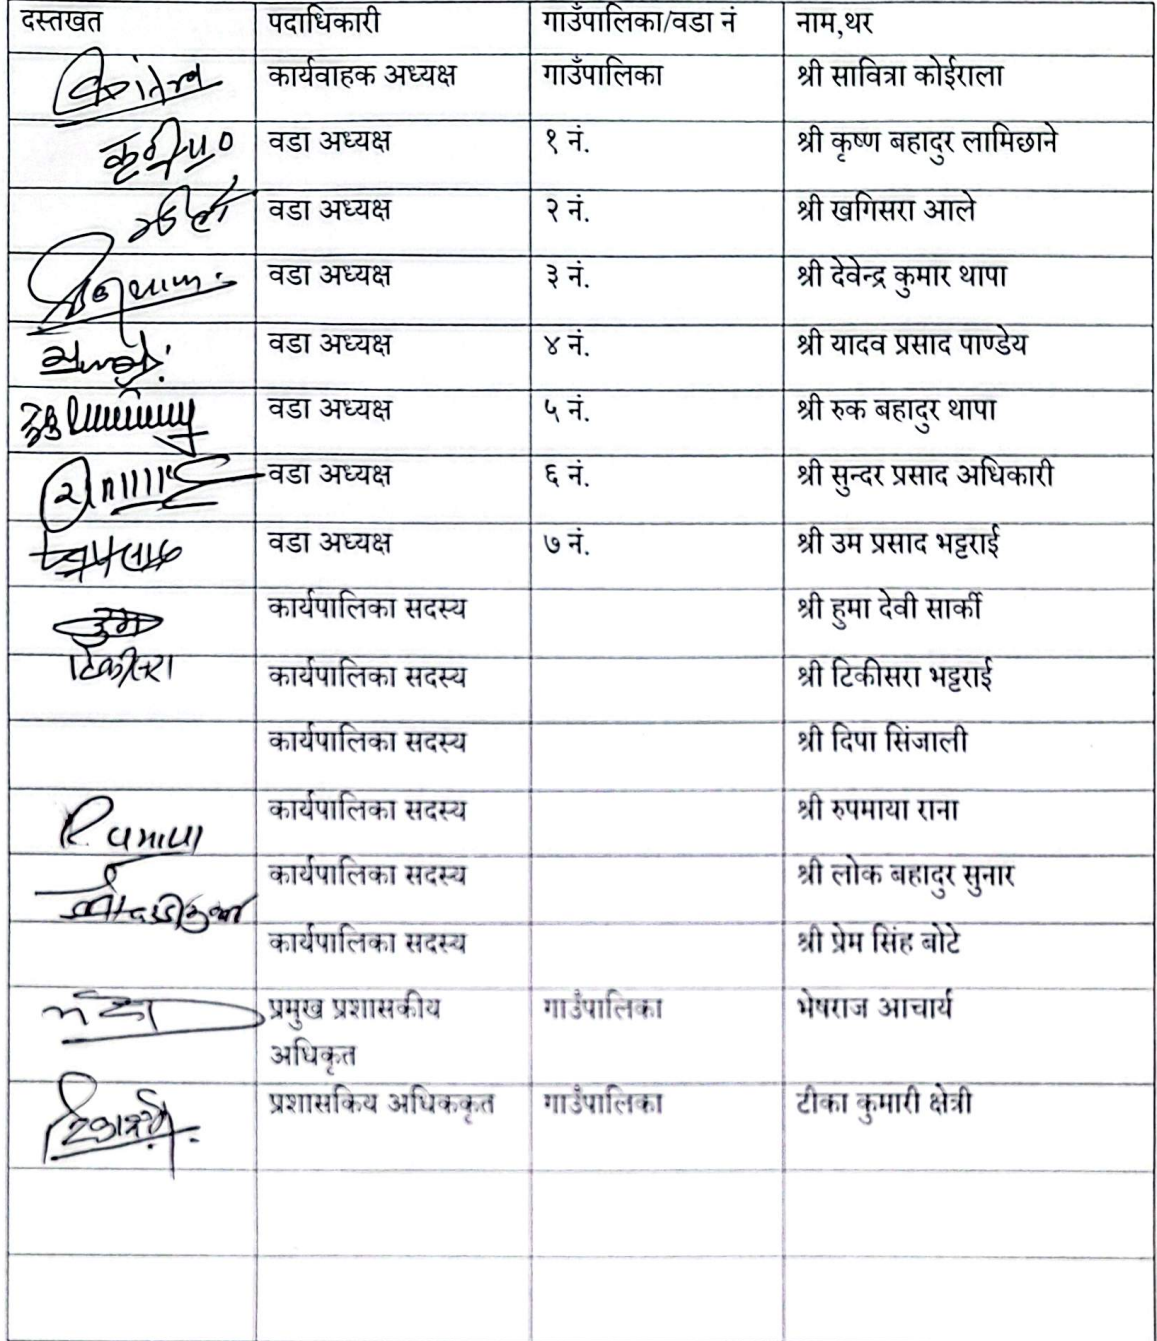 दस्तखत पदाधिकारी गाउँपालिका/वडा नं नाम,थर
कार्यवाहक अध्यक्ष गाउँपालिका श्री सावित्रा कोईराला
वडा अध्यक्ष १ नं. श्री कृष्ण बहादुर लामिछाने
वडा अध्यक्ष २ नं. श्री खगिसरा आले
वडा अध्यक्ष ३ नं. श्री देवेन्द्र कुमार थापा
वडा अध्यक्ष ४ नं. श्री यादव प्रसाद पाण्डेय
वडा अध्यक्ष ५ नं. श्री रुक बहादुर थापा
वडा अध्यक्ष ६ नं. श्री सुन्दर प्रसाद अधिकारी
वडा अध्यक्ष ७ नं. श्री उम प्रसाद भट्टराई
हुमा कार्यपालिका सदस्य श्री हुमा देवी सार्की
टिकीसरा कार्यपालिका सदस्य श्री टिकीसरा भट्टराई
कार्यपालिका सदस्य श्री दिपा सिंजाली
कार्यपालिका सदस्य श्री रुपमाया राना
कार्यपालिका सदस्य श्री लोक बहादुर सुनार
कार्यपालिका सदस्य श्री प्रेम सिंह बोटे
प्रमुख प्रशासकीय गाउँपालिका भेषराज आचार्य
अधिकृत
प्रशासकिय अधिककृत गाउँपालिका टीका कुमारी क्षेत्री